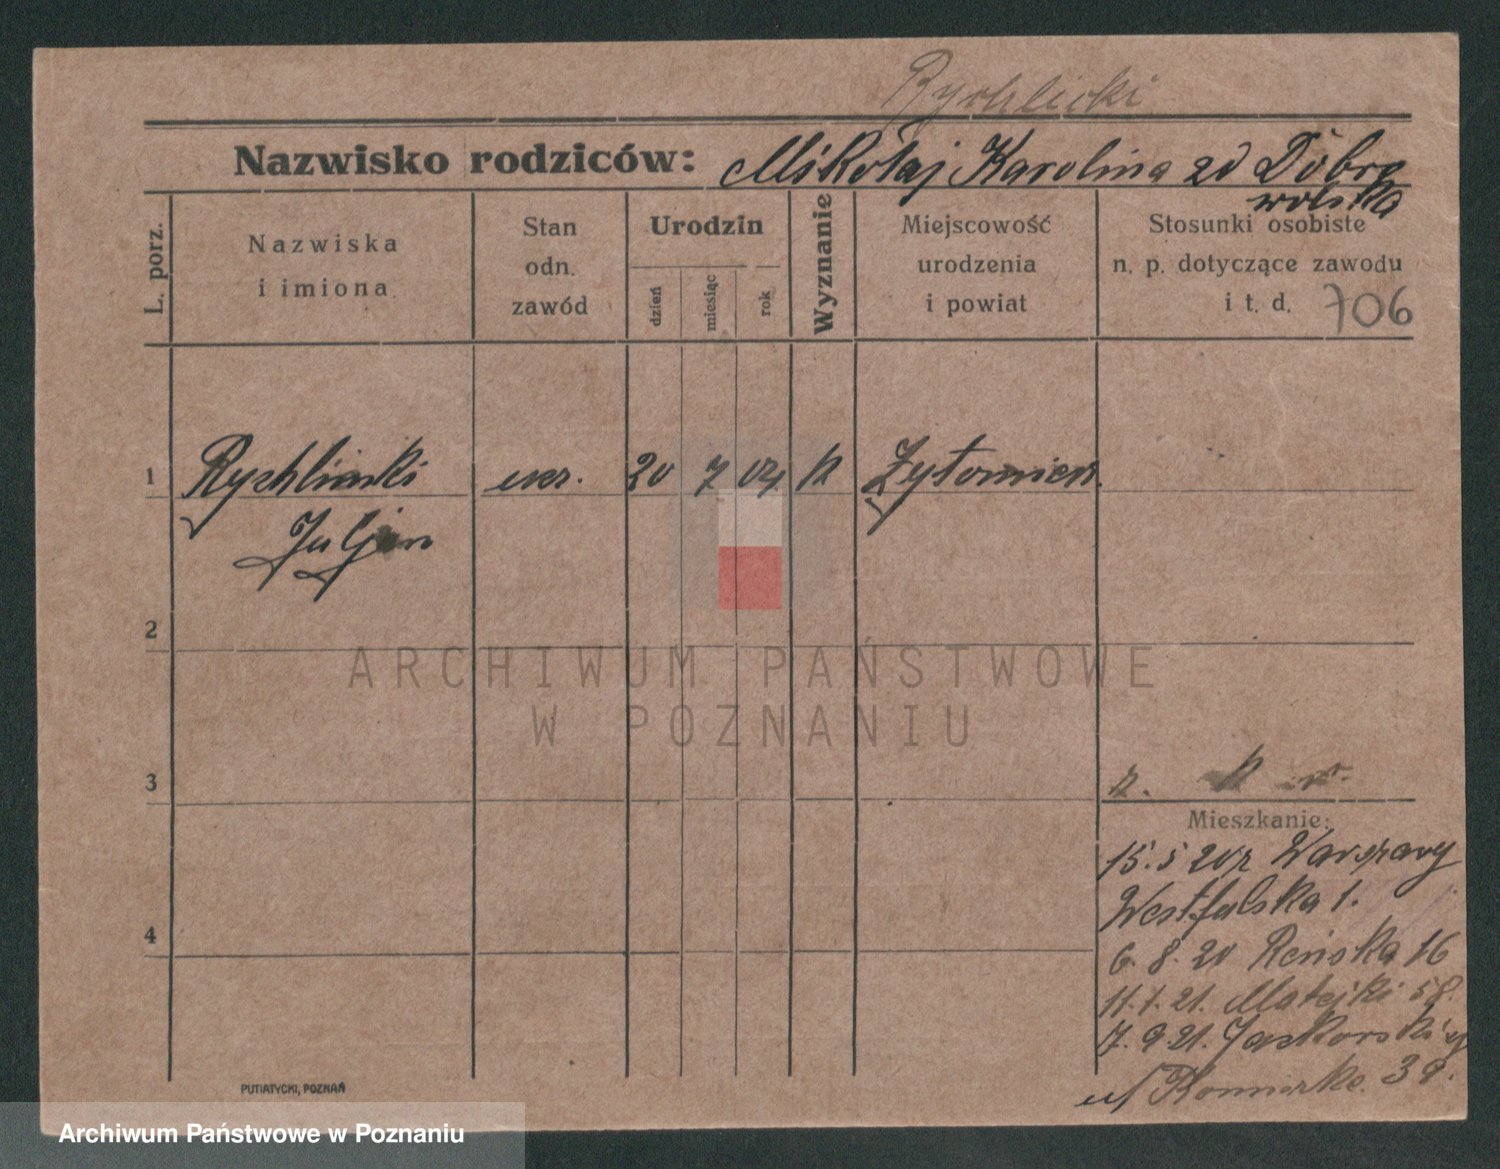 Rychlicki
Nazwisko rodziców: Mikołaj Karolina zd Dobro
wolska
L. porz.
Nazwiska
i imiona
Stan
odn.
zawód
Urodzin
dzień
miesiąc
rok
Wyznanie
Miejscowość
urodzenia
i powiat
Stosunki osobiste
n. p. dotyczące zawodu
i t. d. 706
1 Rychlinski ucz. 20 7 04 k Żytomierz
Juljan
2
3
4
Mieszkanie:
15.5 20 z Warszawy
Westfalska 1.
6. 8. 20 Reńska 16
11.1.21. Matejki 58.
7. 9 21.
39.
PUTIATYCKI, POZNAŃ
ARCHIWUM PAŃSTWOWE
W POZNANIU
Archiwum Państwowe w Poznaniu